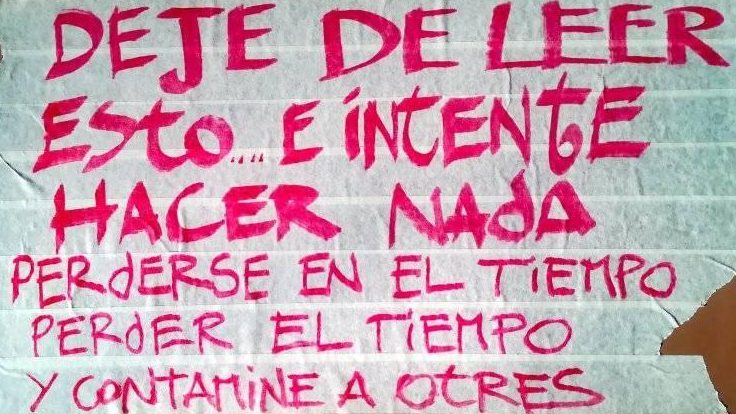 DEJE DE LEER
ESto.... E INTENtE
HACER NAdA
PERdERSE EN EL TIEMPO
PERdER EL TIEMPO
Y CONtAMINE A OtRES